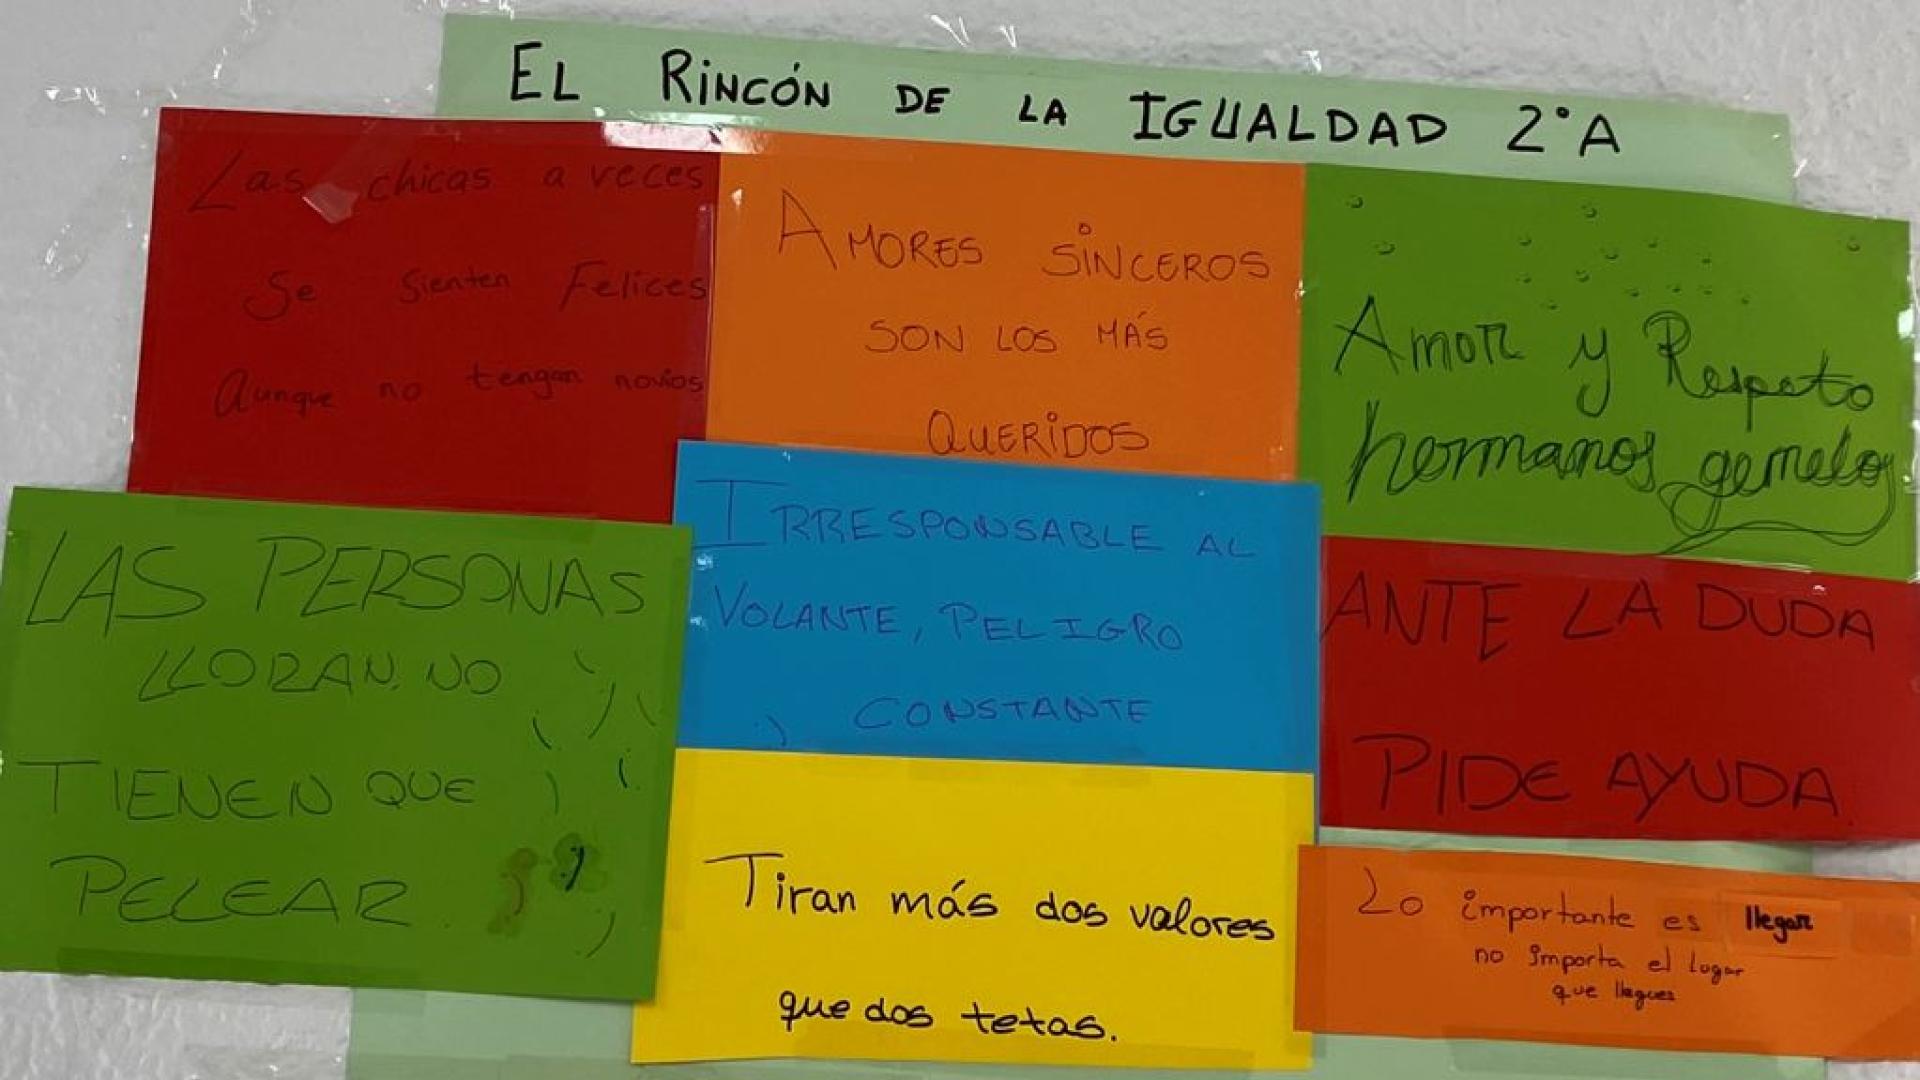 EL RINCÓN DE LA IGUALDAD 2°A
Las chicas a veces
Se Sienten Felices
Aunque no tengan novios
AMORES SINCEROS
SON LOS MÁS
QUERIDOS
Amor y Respeto
hermanos gemelos
LAS PERSONAS
LLORAN. NO
TIENEN QUE
PELEAR.
IRRESPONSABLE AL
VOLANTE, PELIGRO
CONSTANTE
ANTE LA DUDA
PIDE AYUDA.
Tiran más dos valores
que dos tetas.
Lo importante es llegar
no importa el lugar
que llegues